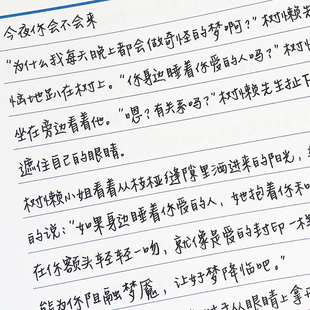 今夜你会不会来
"为什么我每天晚上都会做奇怪的梦啊？"树懒先
恼地趴在树上。"你身边睡着你爱的人吗？"树
坐在旁边看着他。"嗯？有关系吗？"树懒先生扯下
遮住自己的眼睛。
树懒小姐看着从枝桠缝隙里洒进来的阳光，
的说："如果身边睡着你爱的人，她抱着你和
在你额头轻轻一吻，就像是爱的封印一样
能为你阻融梦魇，让好梦降临吧。"
从眼睛上拿